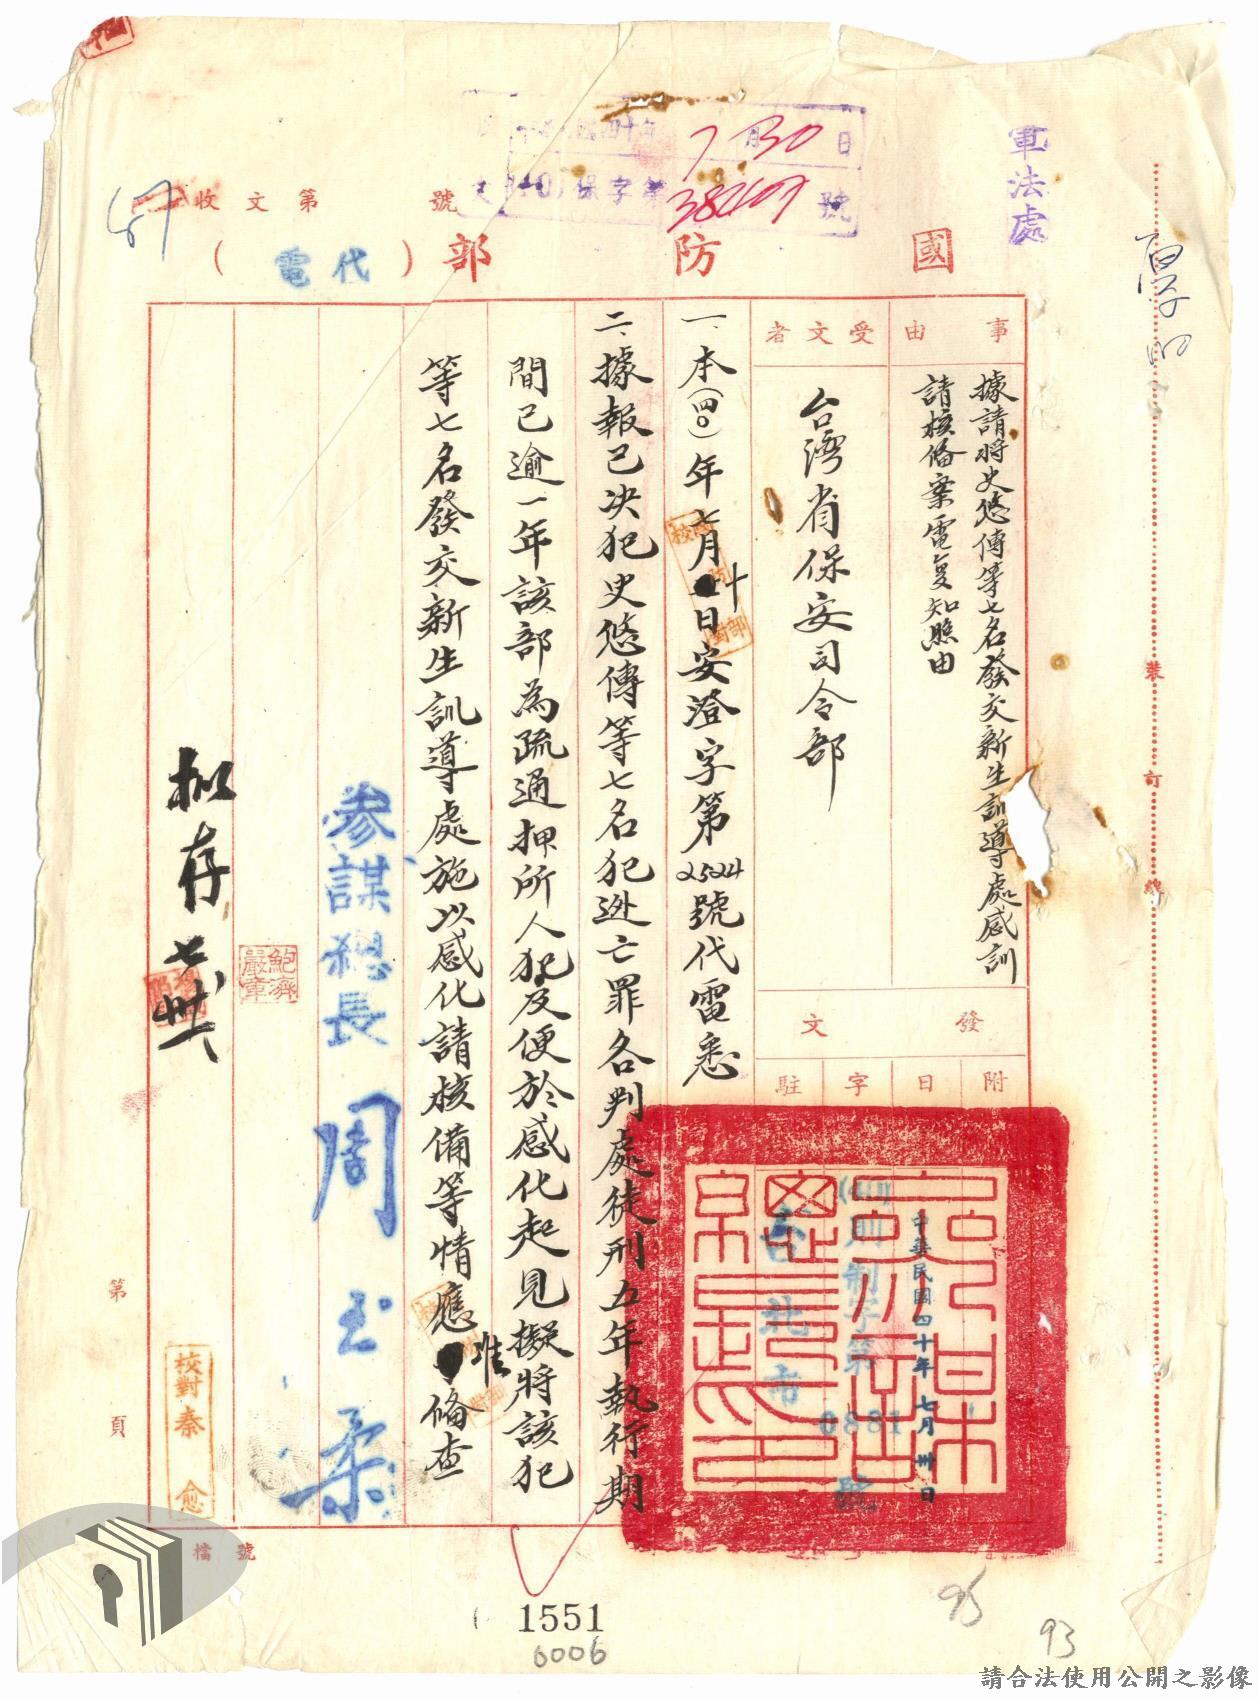 軍法處
7月30日
38407號
收文第 號
國防部（代電）
事由
據請將史悠傳等七名發交新生訓導處感訓
請核備案電复知照由
受文者
台灣省保安司令部
發文
附
日
字
駐
中華民國四十年七月卅日
則制字第0881號
台北市
一、本(四〇)年七月卄日安澄字第2524號代電悉
二、據報已决犯史悠傳等七名犯逃亡罪各判處徒刑五年執行期
間已逾一年該部為疏通押所人犯及便於感化起見擬將該犯
等七名發交新生訓導處施以感化請核備等情應准俻查
參謀總長周至柔
鮑濟嚴章
拟存
校對秦愈
第 頁
檔號
裝訂線
1551
6006
95
93
請合法使用公開之影像